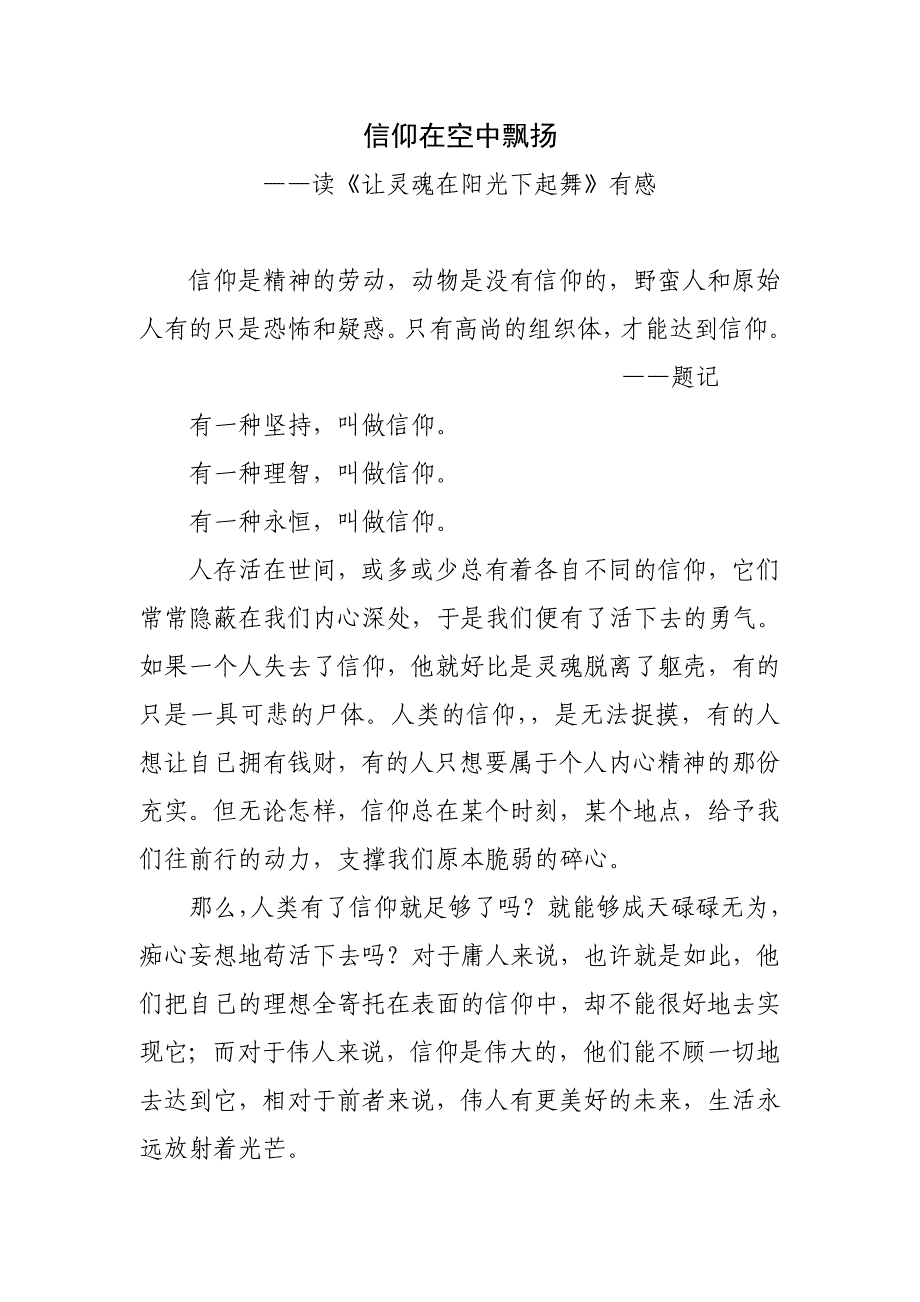 信仰在空中飘扬
——读《让灵魂在阳光下起舞》有感
信仰是精神的劳动，动物是没有信仰的，野蛮人和原始
人有的只是恐怖和疑惑。只有高尚的组织体，才能达到信仰。
——题记
有一种坚持，叫做信仰。
有一种理智，叫做信仰。
有一种永恒，叫做信仰。
人存活在世间，或多或少总有着各自不同的信仰，它们
常常隐蔽在我们内心深处，于是我们便有了活下去的勇气。
如果一个人失去了信仰，他就好比是灵魂脱离了躯壳，有的
只是一具可悲的尸体。人类的信仰，，是无法捉摸，有的人
想让自已拥有钱财，有的人只想要属于个人内心精神的那份
充实。但无论怎样，信仰总在某个时刻，某个地点，给予我
们往前行的动力，支撑我们原本脆弱的碎心。
那么，人类有了信仰就足够了吗？就能够成天碌碌无为，
痴心妄想地苟活下去吗？对于庸人来说，也许就是如此，他
们把自己的理想全寄托在表面的信仰中，却不能很好地去实
现它；而对于伟人来说，信仰是伟大的，他们能不顾一切地
去达到它，相对于前者来说，伟人有更美好的未来，生活永
远放射着光芒。